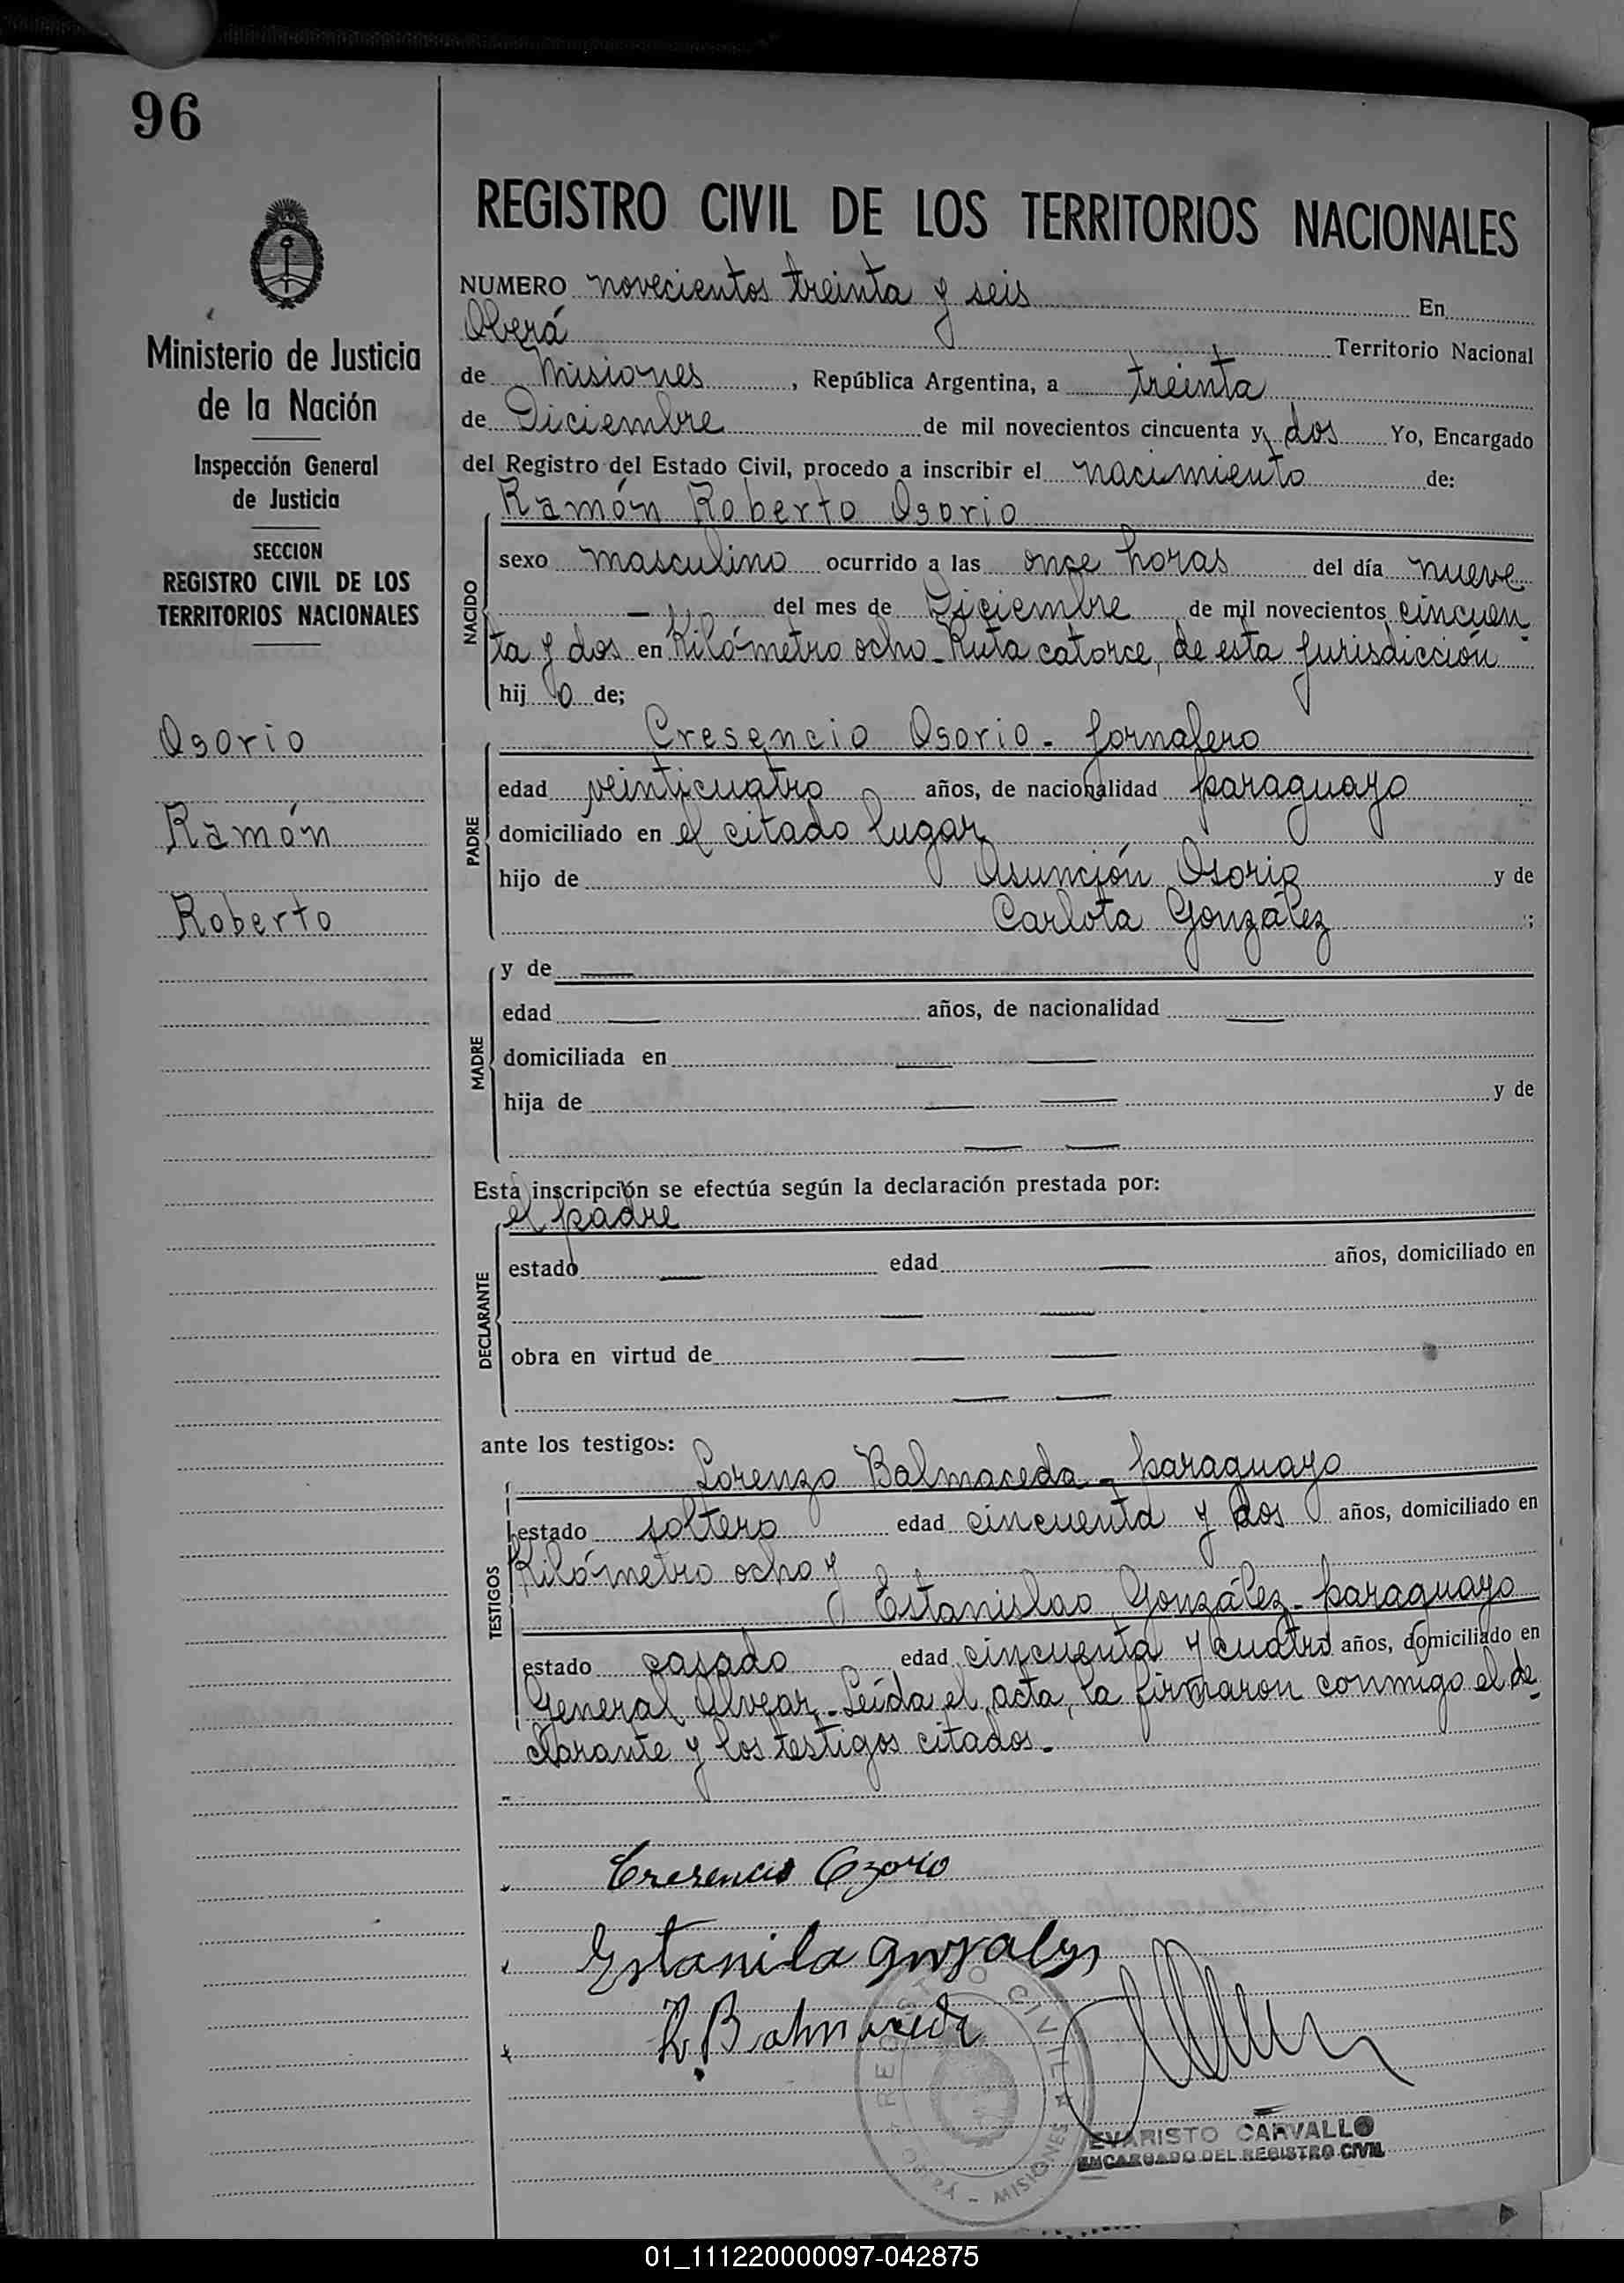 96
REGISTRO CIVIL DE LOS TERRITORIOS NACIONALES
Ministerio de Justicia
de la Nación
Inspección General
de Justicia
SECCION
REGISTRO CIVIL DE LOS
TERRITORIOS NACIONALES
Osorio
Ramón
Roberto
NUMERO novecientos treinta y seis En
Oberá Territorio Nacional
de Misiones, República Argentina, a treinta
de Diciembre de mil novecientos cincuenta y dos Yo, Encargado
del Registro del Estado Civil, procedo a inscribir el nacimiento de:
Ramón Roberto Osorio
NACIDO
sexo masculino ocurrido a las once horas del día nueve
— del mes de Diciembre de mil novecientos cincuen-
ta y dos en Kilómetro ocho - Ruta catorce, de esta jurisdicción
hijo de;
PADRE
Cresencio Osorio - jornalero
edad veinticuatro años, de nacionalidad paraguayo
domiciliado en el citado lugar
hijo de Asunción Osorio y de
Carlota González ;
MADRE
y de —
edad — años, de nacionalidad —
domiciliada en — —
hija de — — y de
— —
Esta inscripción se efectúa según la declaración prestada por:
el padre
DECLARANTE
estado — edad — años, domiciliado en
— —
obra en virtud de — —
— —
ante los testigos:
TESTIGOS
Lorenzo Balmaceda - paraguayo
estado soltero edad cincuenta y dos años, domiciliado en
Kilómetro ocho y
Estanislao González - paraguayo
estado casado edad cincuenta y cuatro años, domiciliado en
General Alvear. - Leída el acta, la firmaron conmigo el de-
clarante y los testigos citados. -
Cresencio Ozorio
Estanila Gonzales
L. Balmaceda
REGISTRO CIVIL
OBERÁ - MISIONES
EVARISTO CARVALLO
ENCARGADO DEL REGISTRO CIVIL
01_111220000097-042875